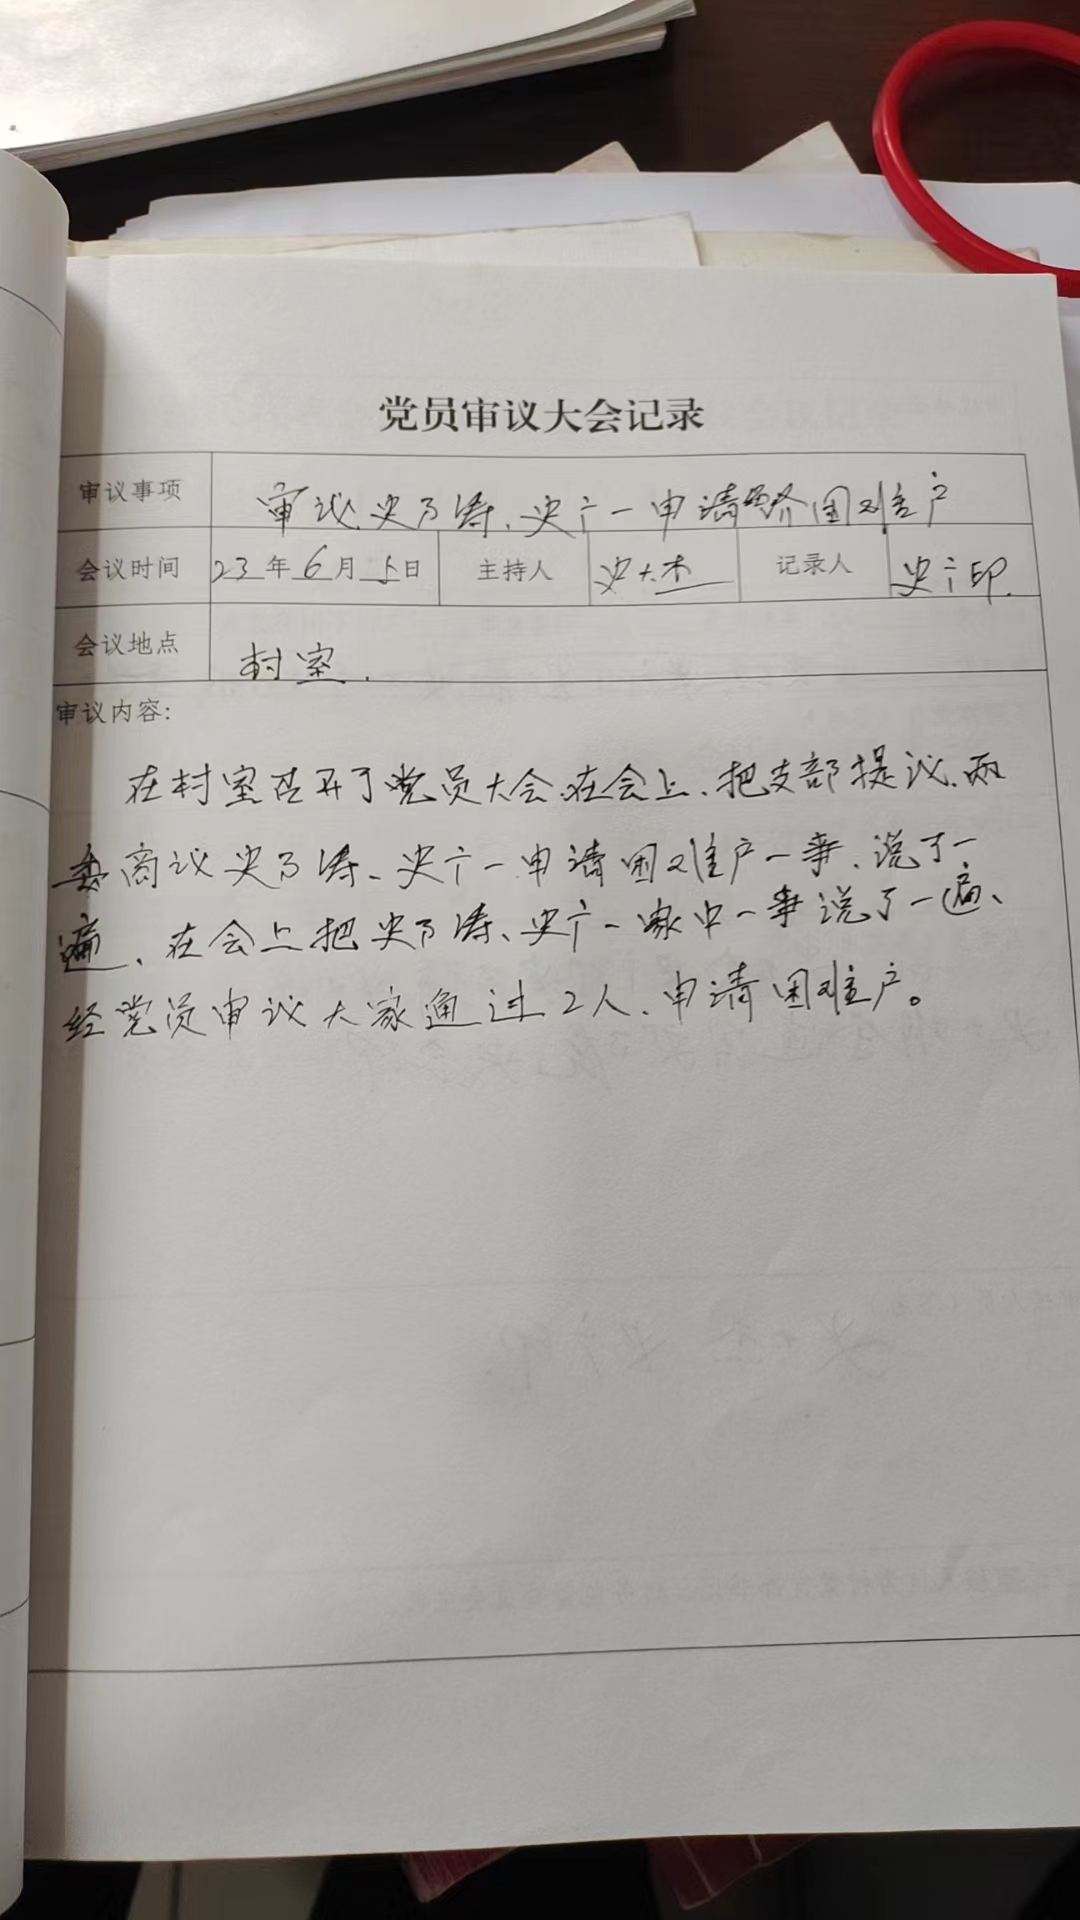 党员审议大会记录
审议事项 审议史乃涛、史广一申请 困难户
会议时间 23年6月5日 主持人 史大杰 记录人 史广印.
会议地点 村室.
审议内容:
在村室召开了党员大会.在会上、把支部提议、两
委商议史乃涛、史广一申请困难户一事、说了一
遍、在会上把史乃涛、史广一家中一事说了一遍、
经党员审议大家通过2人、申请困难户。